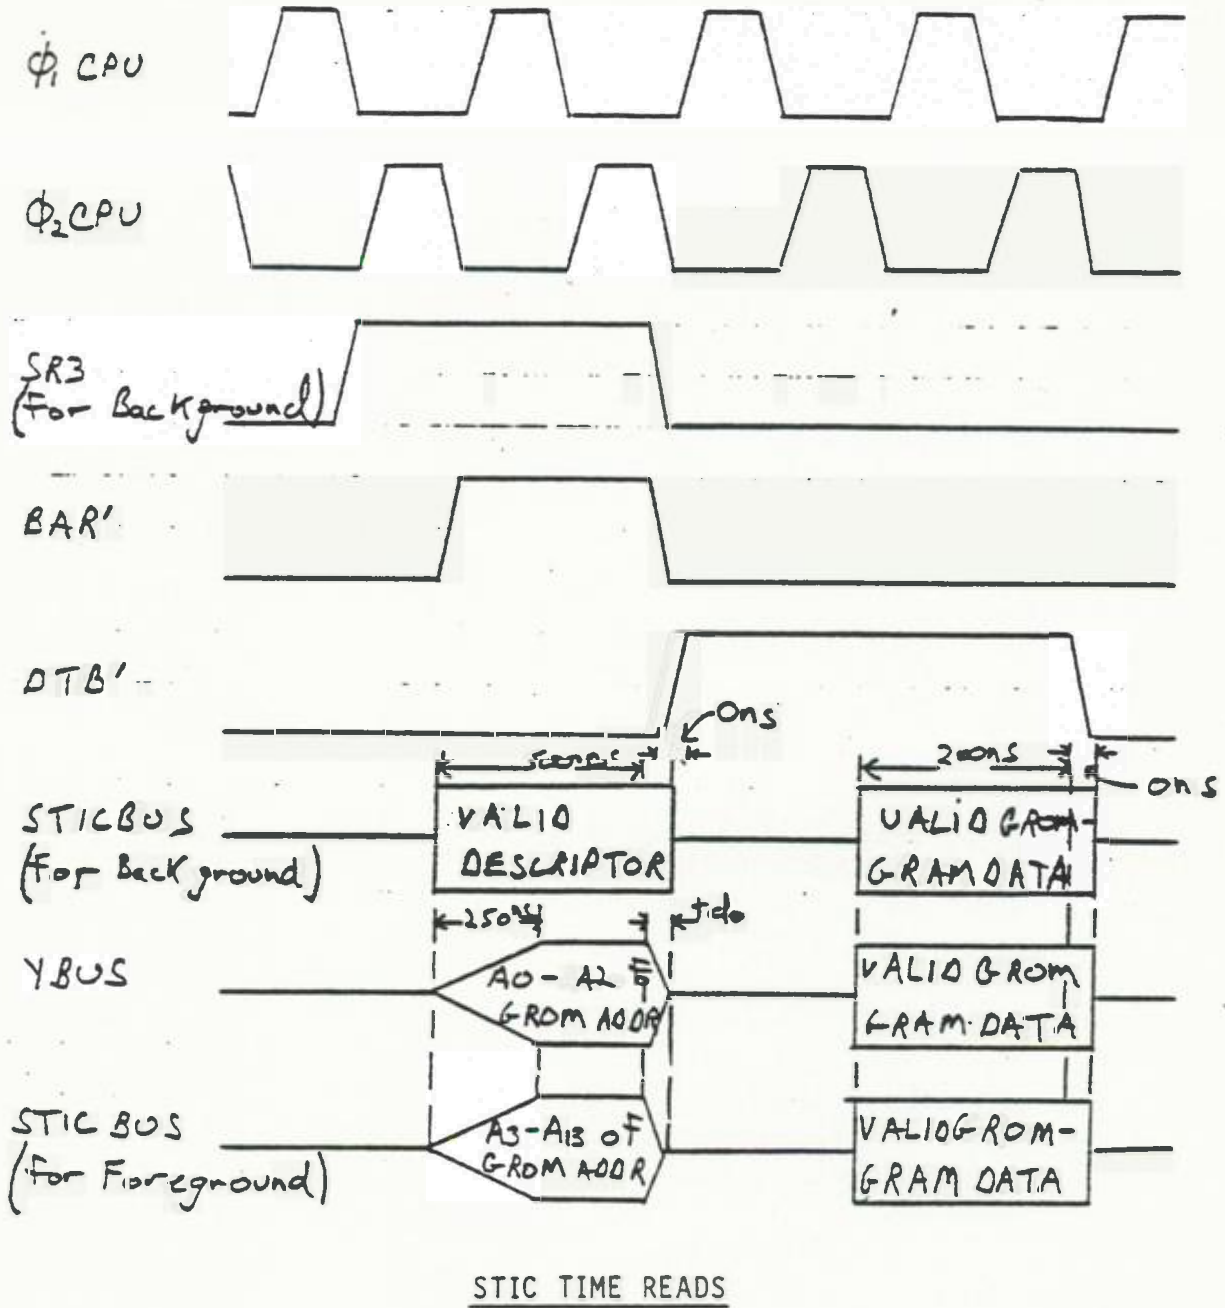 ϕ₁ CPU
ϕ₂ CPU
SR3
(For Background)
BAR'
DTB'
0ns
200ns
0ns
STICBUS
(For Background)
VALID
DESCRIPTOR
VALID GROM-
GRAM DATA
250ns
tdo
YBUS
A0 - A2 of
GROM ADDR
VALID GROM
GRAM DATA
STIC BUS
(For Foreground)
A3-A13 of
GROM ADDR
VALID GROM-
GRAM DATA
STIC TIME READS